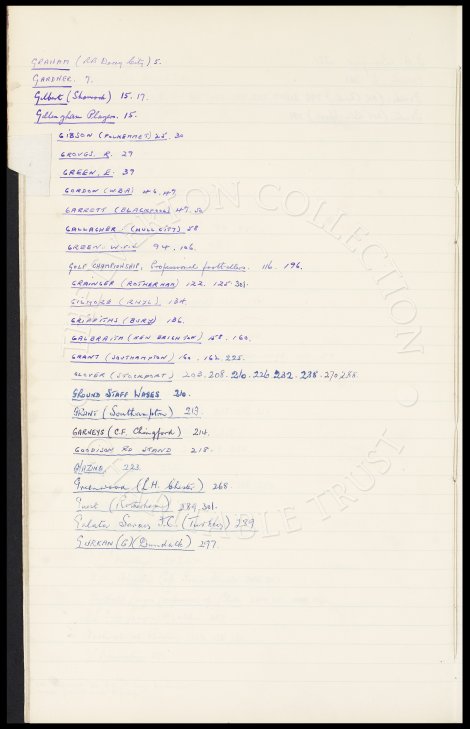 GRAHAM (Derry City) 5.
GARDNER. 7.
Gilbert (Shamrock) 15. 17.
Gillingham Players. 15.
GIBSON (POLKEMMET) 25, 30
GROVES. R. 29
GREEN, E. 39
GORDON (W.B.A) 46. 49.
GARRETT (BLACKPOOL) 49. 50
GALLAGHER. (HULL CITY) 58
GREEN. 94, 106.
GOLF CHAMPIONSHIP, Professional footballers. 116. 196.
GRAINGER (ROTHERHAM) 122. 125. 301.
GILMORE (RHYL). 134.
GRIFFITHS (BURY) 136.
GALBRAITH (NEW BRIGHTON) 158. 160.
GRANT (SOUTHAMPTON) 160. 162. 225.
GLOVER (STOCKPORT) 203. 208. 210. 226 232. 238. 270. 288.
GROUND STAFF WAGES 210.
GRANT (Southampton) 213.
GARNEYS (C.F. Chingford) 214.
GOODISON RD STAND 218.
223
Greenwood (Chester) 268
(Rotherham) 289, 301.
Galata Saray F.C. (Turkey) 289
GURKAN (G) (Dundalk) 297.
COLLECTION
TRUST